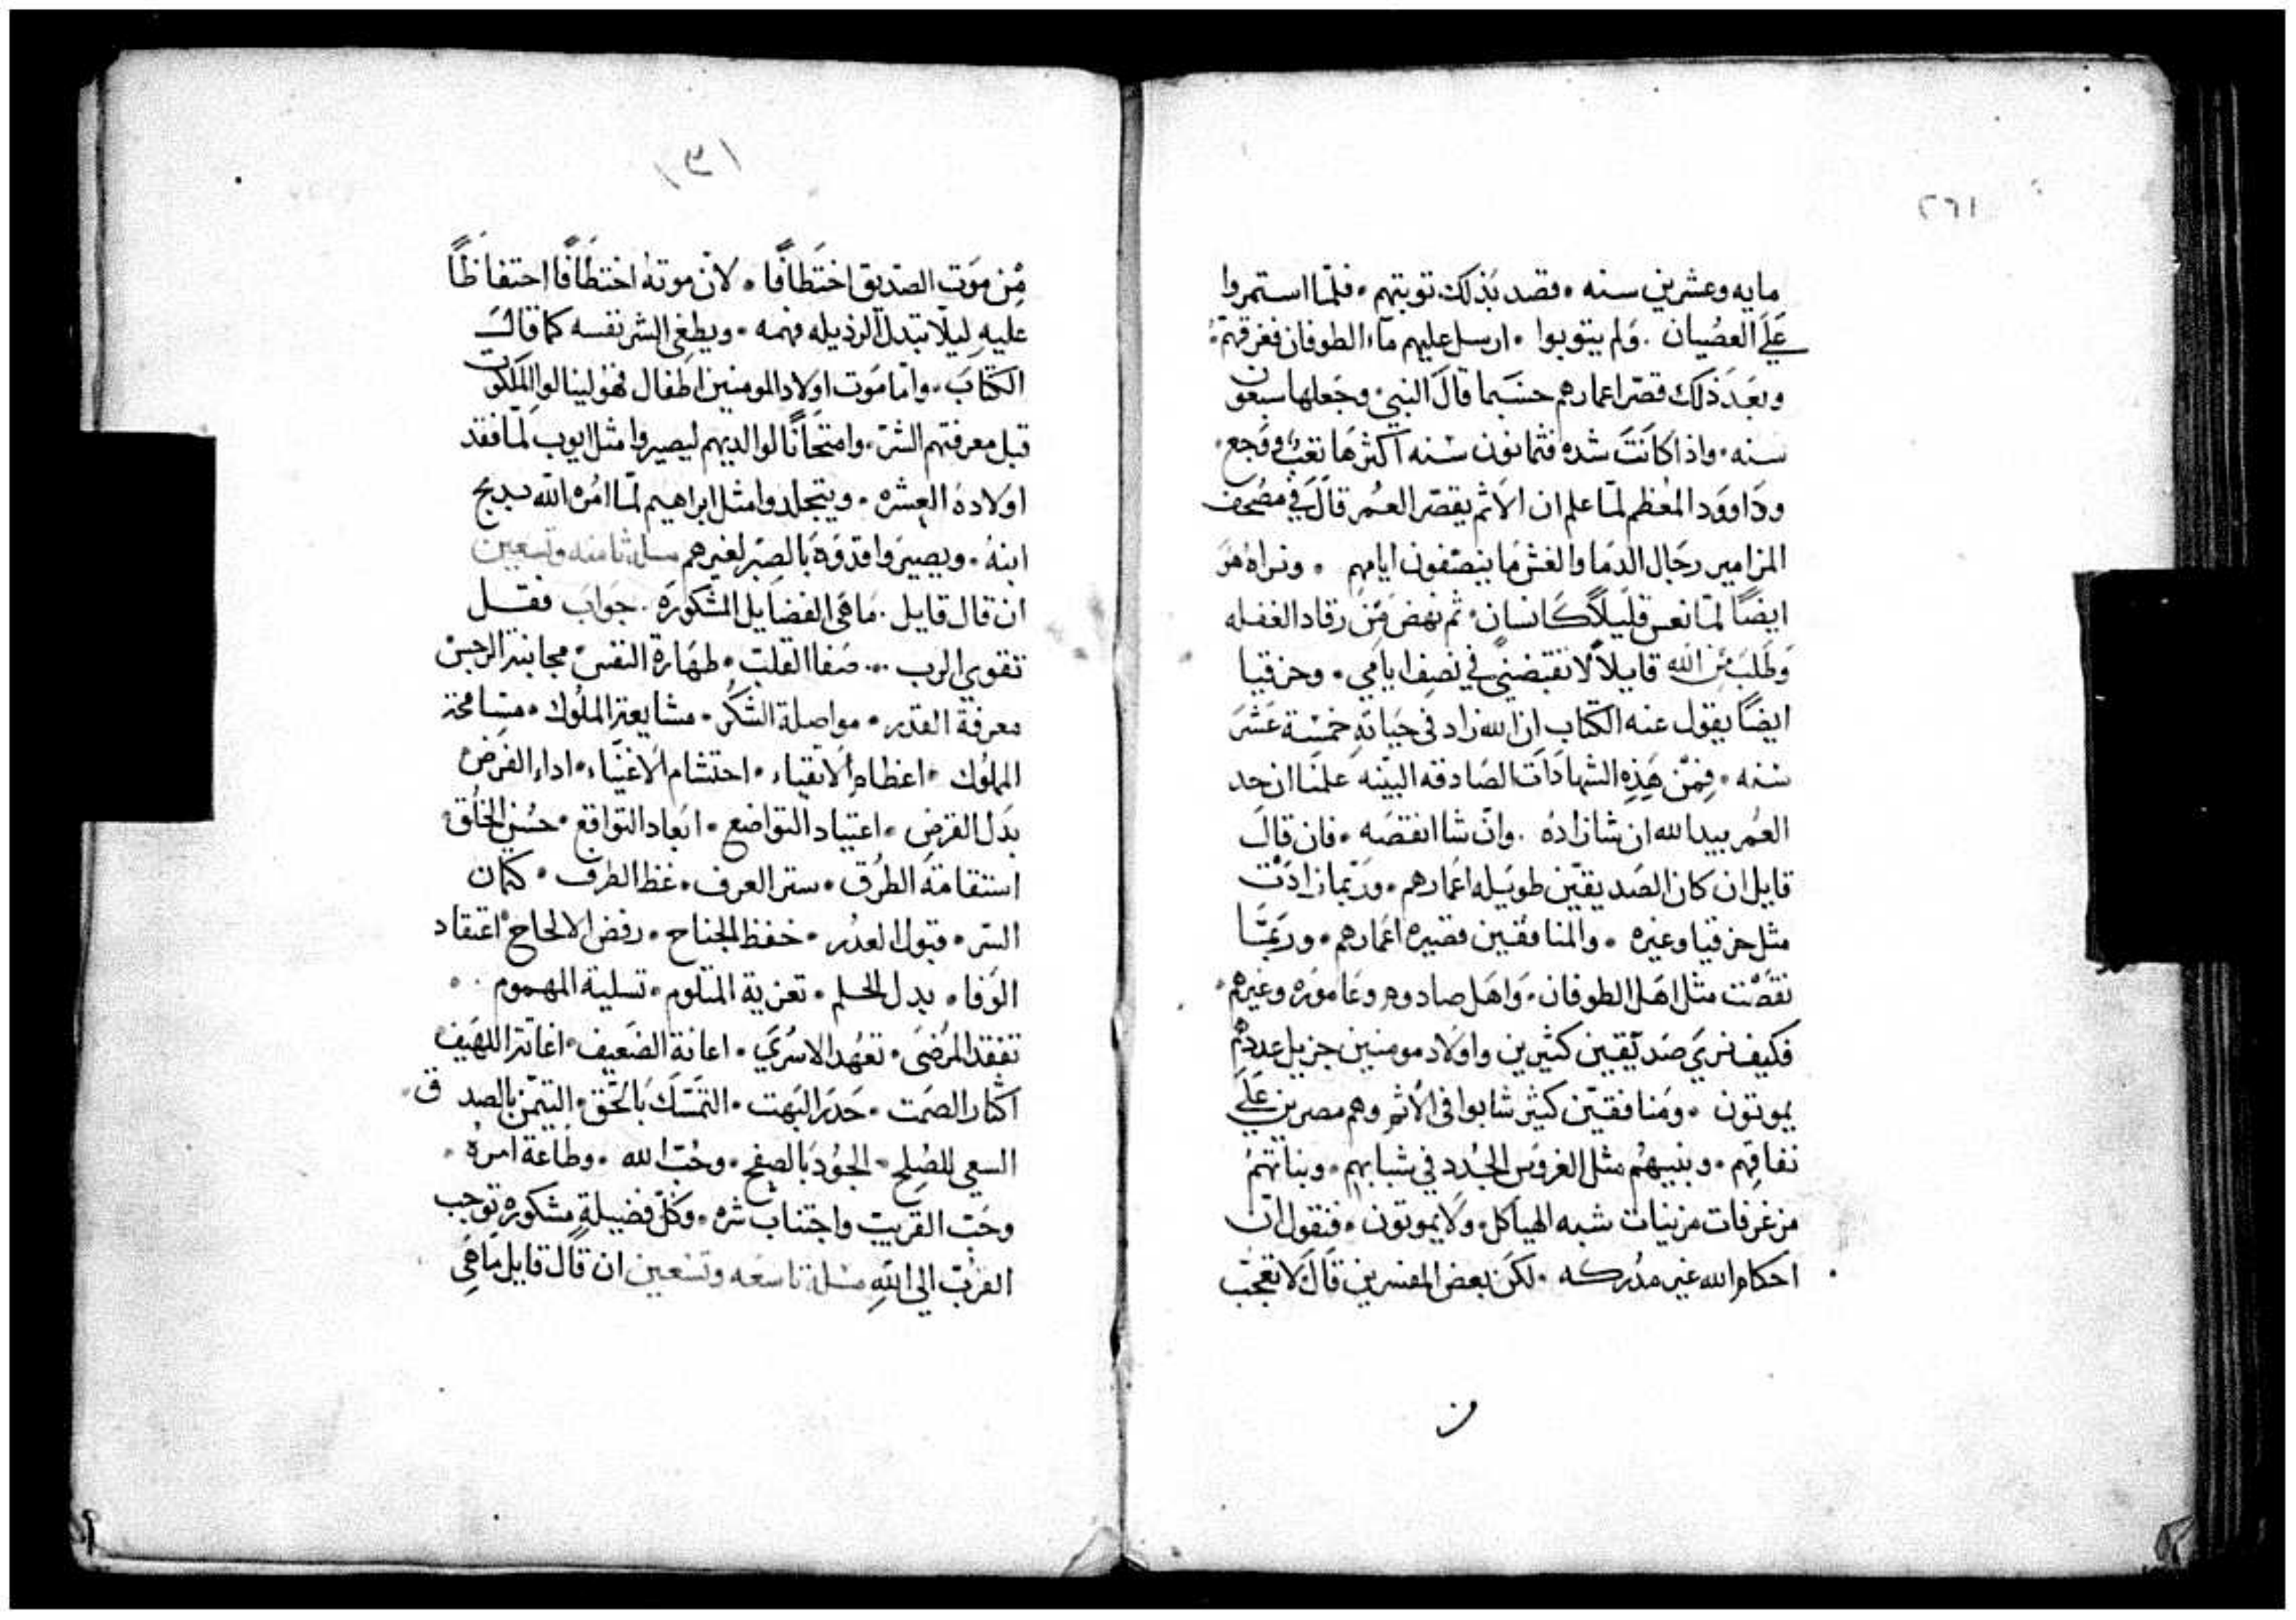 ٢٦١
مايه وعشرين سنه • فصد بذلك توبتهم • فلما استمروا
على العصيان . ولم يتوبوا • ارسل عليهم ماء الطوفان فغرقهم •
وبعد ذلك قصر اعمارهم حسبما قال النبي • وجعلها سبعون
سنه • واذا كانت شده فثمانون سنه اكثرها تعب ووجع •
وداوود المعظم لما علم ان الاثم يقصر العمر قال في مصحف
المزامير رجال الدما والغش ما ينصفون ايامهم • ونراه هو
ايضاً لما نعس قليلاً كانسان • ثم نهض من رقاد الغفله
وطلب من الله قايلاً لا تقبضني في نصف ايامي • وحزقيا
ايضاً يقول عنه الكتاب ان الله زاد في حياته خمسة عشر
سنه • فمن هذه الشهادات الصادقه البينه علمنا ان حد
العمر بيد الله ان شا زاده . وان شا انقصه • فان قال
قايل ان كان الصديقين طويله اعمارهم • وربما زادت
مثل حزقيا وغيره • والمنافقين قصيره اعمارهم • وربما
نقصت مثل اهل الطوفان • واهل صادوم وعاموره وغيرهم •
فكيف نري صديقين كثيرين واولاد مومنين جزيل عددهم
يموتون • ومنافقين كثير شابوا في الاثم وهم مصرين على
نفاقهم • وبنيهم مثل الغروس الجدد في شبابهم • وبناتهم
مزغرفات مزينات شبه الهياكل • ولا يموتون • فنقول ان
احكام الله غير مدركه • لكن بعض المفسرين قال لا تعجب
١٣١
من موت الصديق اختطافا • لان موته اختطافا احتفاظاً
عليه ليلا تبدل الرذيله فهمه • ويطغي الشر نفسه كما قال
الكتاب • واما موت اولاد المومنين اطفال فهو لينالوا الملكوت
قبل معرفتهم الشر • وامتحاناً لوالديهم ليصيروا مثل ايوب لما فقد
اولاده العشره • ويتجلدوا مثل ابراهيم لما امره الله بدبح
ابنه • ويصيروا قدوة بالصبر لغيرهم مسلة ثامنه وتسعين
ان قال قايل . ما هي الفضايل المشكورة . جواب فقل
تقوي الرب ... صفا القلب • طهارة النفس • مجانبة الرجس
معرفة القدر • مواصلة الشكر • مشايعة الملوك • مسامحة
المملوك • اعظام الاتقياء • احتشام الاغنياء • اداء الفرض
بدل القرض • اعتياد التواضع • ابعاد التواقع • حسن الخلق •
استقامة الطرق • ستر العرف • غظ الطرف • كتمان
السر • قبول العدر • خفظ الجناح • رفض الالحاح • اعتقاد
الوفا • بدل الحلم • تعزية المتلوم • تسلية المهموم . •
تفقد المرضى • تعهد الاسري • اعانة الضعيف • اغاثة اللهيف
اكثار الصمت • حدر البهت • التمسك بالحق • التيمن بالصدق •
السعي للصلح • الجود بالصفح • وحب الله • وطاعة امره •
وحب القريب واجتناب شره • وكل فضيلة مشكوره توجب
القرب الي الله مسلة تاسعه وتسعين ان قال قايل ما هي